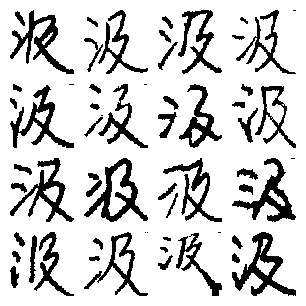 汲汲汲汲
汲汲汲汲
汲汲汲汲
汲汲汲汲